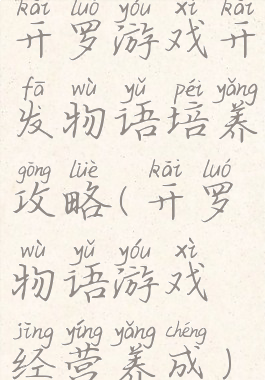 kāi luō yóu xì kāi
开罗游戏开
fā wù yǔ péi yǎng
发物语培养
gōng lüè kāi luó
攻略(开罗
wù yǔ yóu xì
物语游戏
jīng yíng yǎng chéng
经营养成)